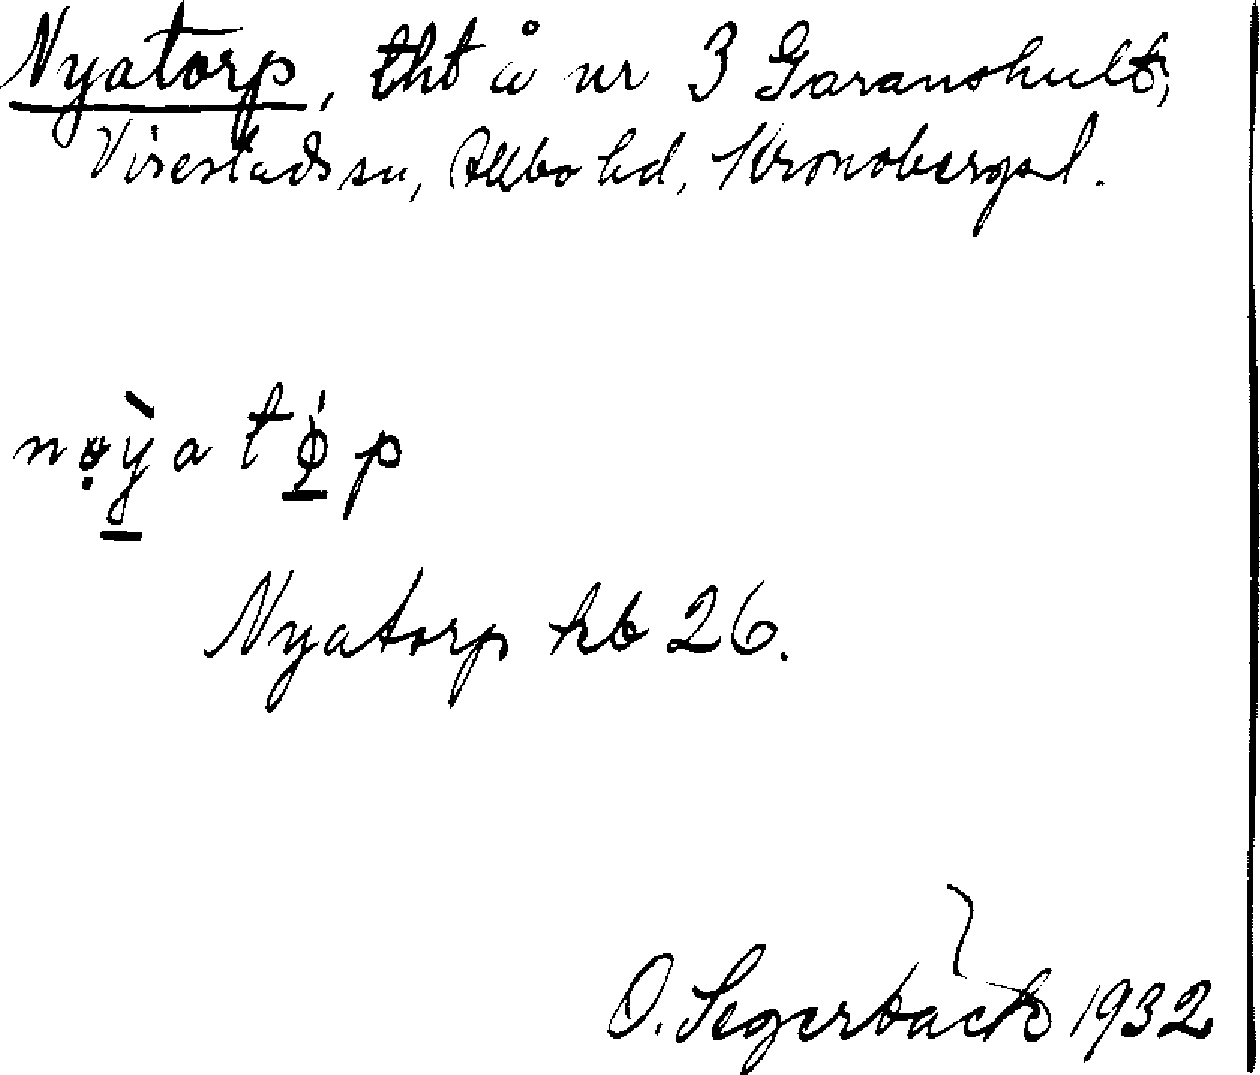 Nyatorp, tht å nr 3 Garanshult,
Virestads sn, Allbo hd, Kronobergs l.
nøỳa tǫ́p
Nyatorp kb 26.
O. Segerbäck 1932